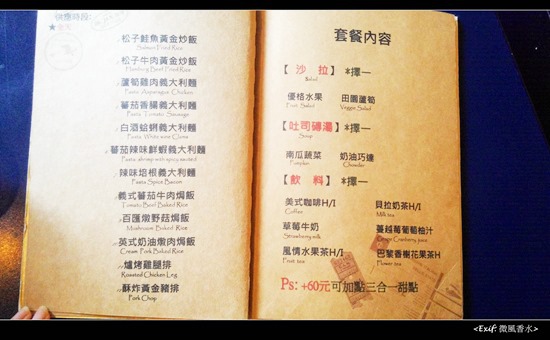 供應時段:
★
松子鮭魚黃金炒飯
Salmon Fried Rice
松子牛肉黃金炒飯
Hamburg Beef Fried Rice
蘆筍雞肉義大利麵
Pasta Asparagus Chicken
蕃茄香腸義大利麵
Pasta Tomato Sausage
白酒蛤蜊義大利麵
Pasta White wine Clams
蕃茄辣味鮮蝦義大利麵
Pasta shrimp with spicy sauted
辣味培根義大利麵
Pasta Spice Bacon
義式蕃茄牛肉焗飯
Tomato Beef Baked Rice
百匯燉野菇焗飯
Mushroom Baked Rice
英式奶油燉肉焗飯
Cream Pork Baked Rice
爐烤雞腿排
Roasted Chicken Leg
酥炸黃金豬排
Pork Chop
套餐內容
【 沙 拉】 *擇一
Salad
優格水果 田園蘆筍
Fruit Salad Veggie Salad
【吐司磚湯】*擇一
Soup
南瓜蔬菜 奶油巧達
Pumpkin Chowder
【飲 料】 *擇一
美式咖啡H/I 貝拉奶茶H/I
Coffee Milk tea
草莓牛奶 蔓越莓葡萄柚汁
Strawberry milk Cranberry juice
風情水果茶H/I 巴黎香榭花果茶H
Fruit tea Flower tea
Ps: +60元可加點三合一甜點
<Exif: 微風香水>